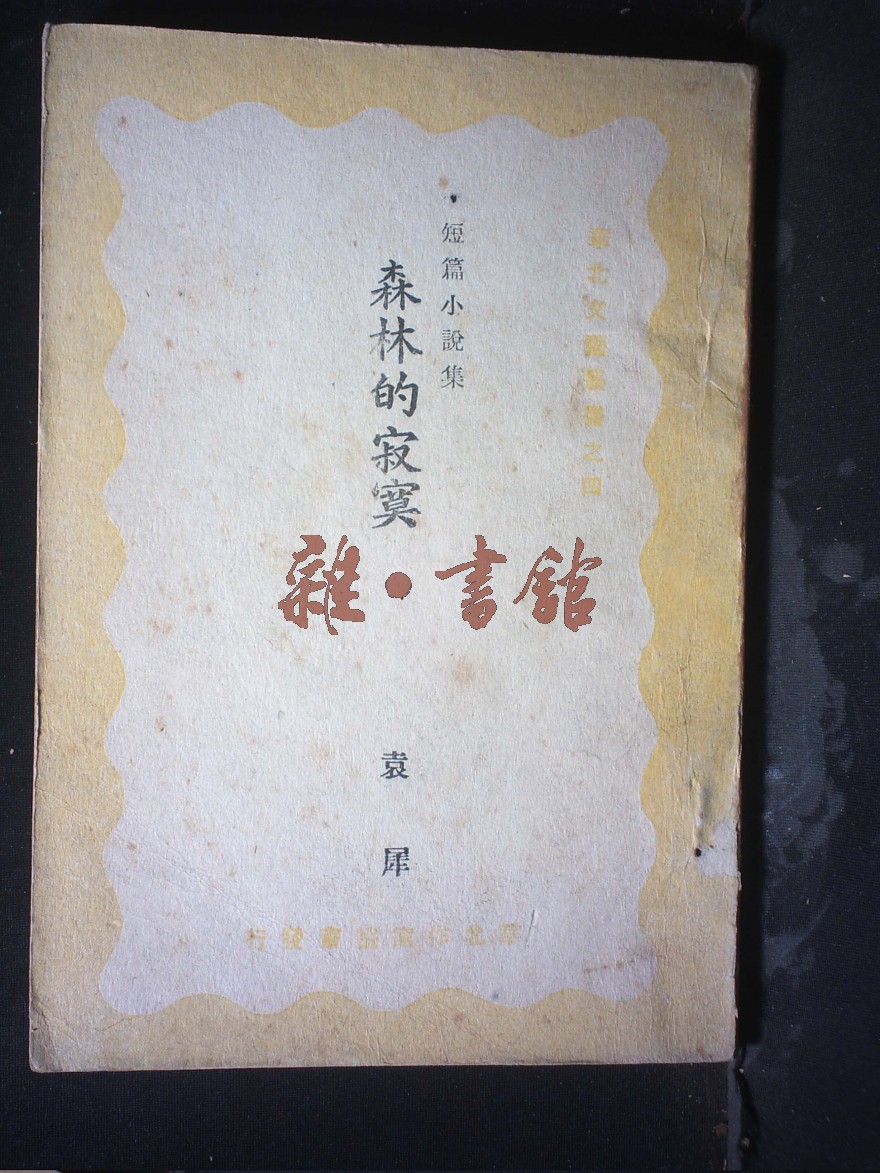 華北文藝叢書之四
短篇小說集
森林的寂寞
雜·書館
袁犀
華北作家協會發行